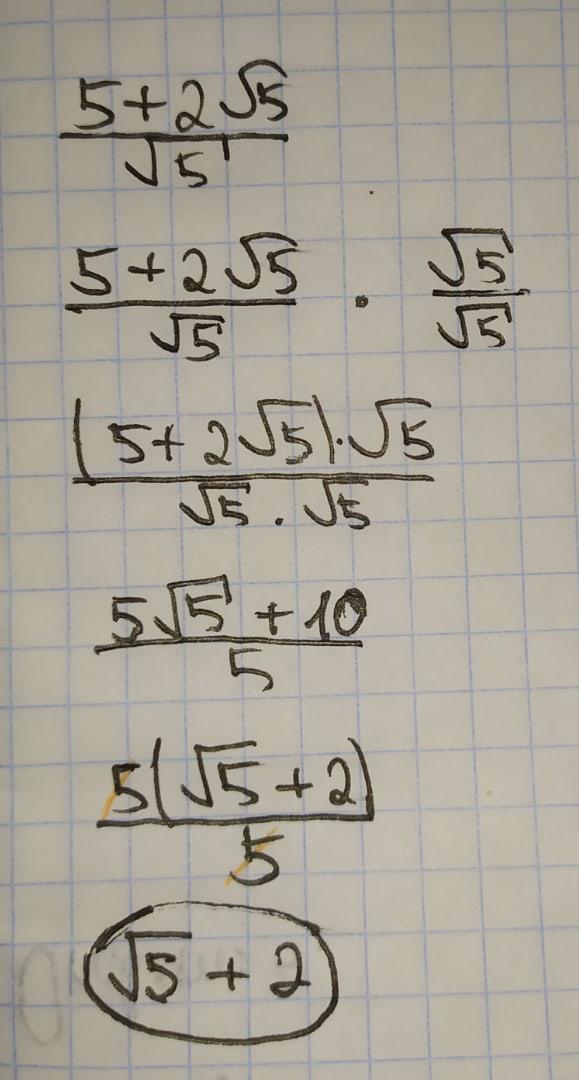 (5+2√5)/√5
(5+2√5)/√5 · √5/√5
((5+2√5)·√5)/(√5·√5)
(5√5+10)/5
5(√5+2)/5
√5+2